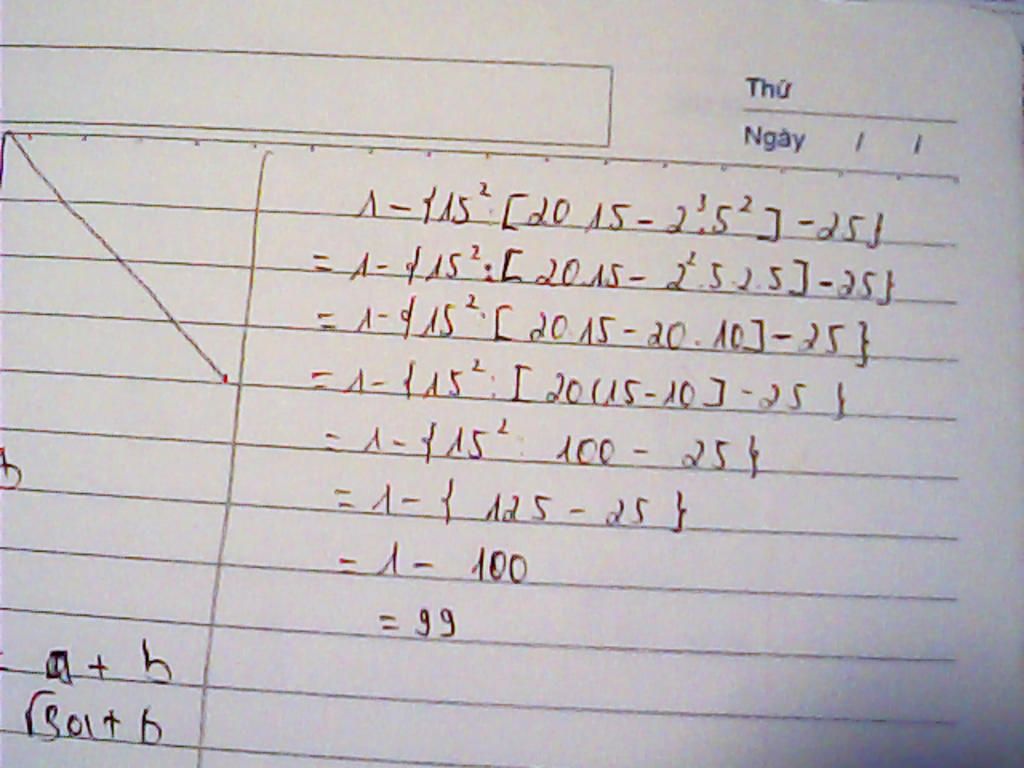 Thứ
Ngày / /
1 - {15²: [20 15 - 2³.5²] - 25}
= 1 - {15²: [20.15 - 2².5.2.5] - 25}
= 1 - {15²: [20.15 - 20.10] - 25}
= 1 - {15²: [20(15-10] - 25}
= 1 - {15²: 100 - 25}
= 1 - { 125 - 25 }
= 1 - 100
= 99
= a + b
√3a + b